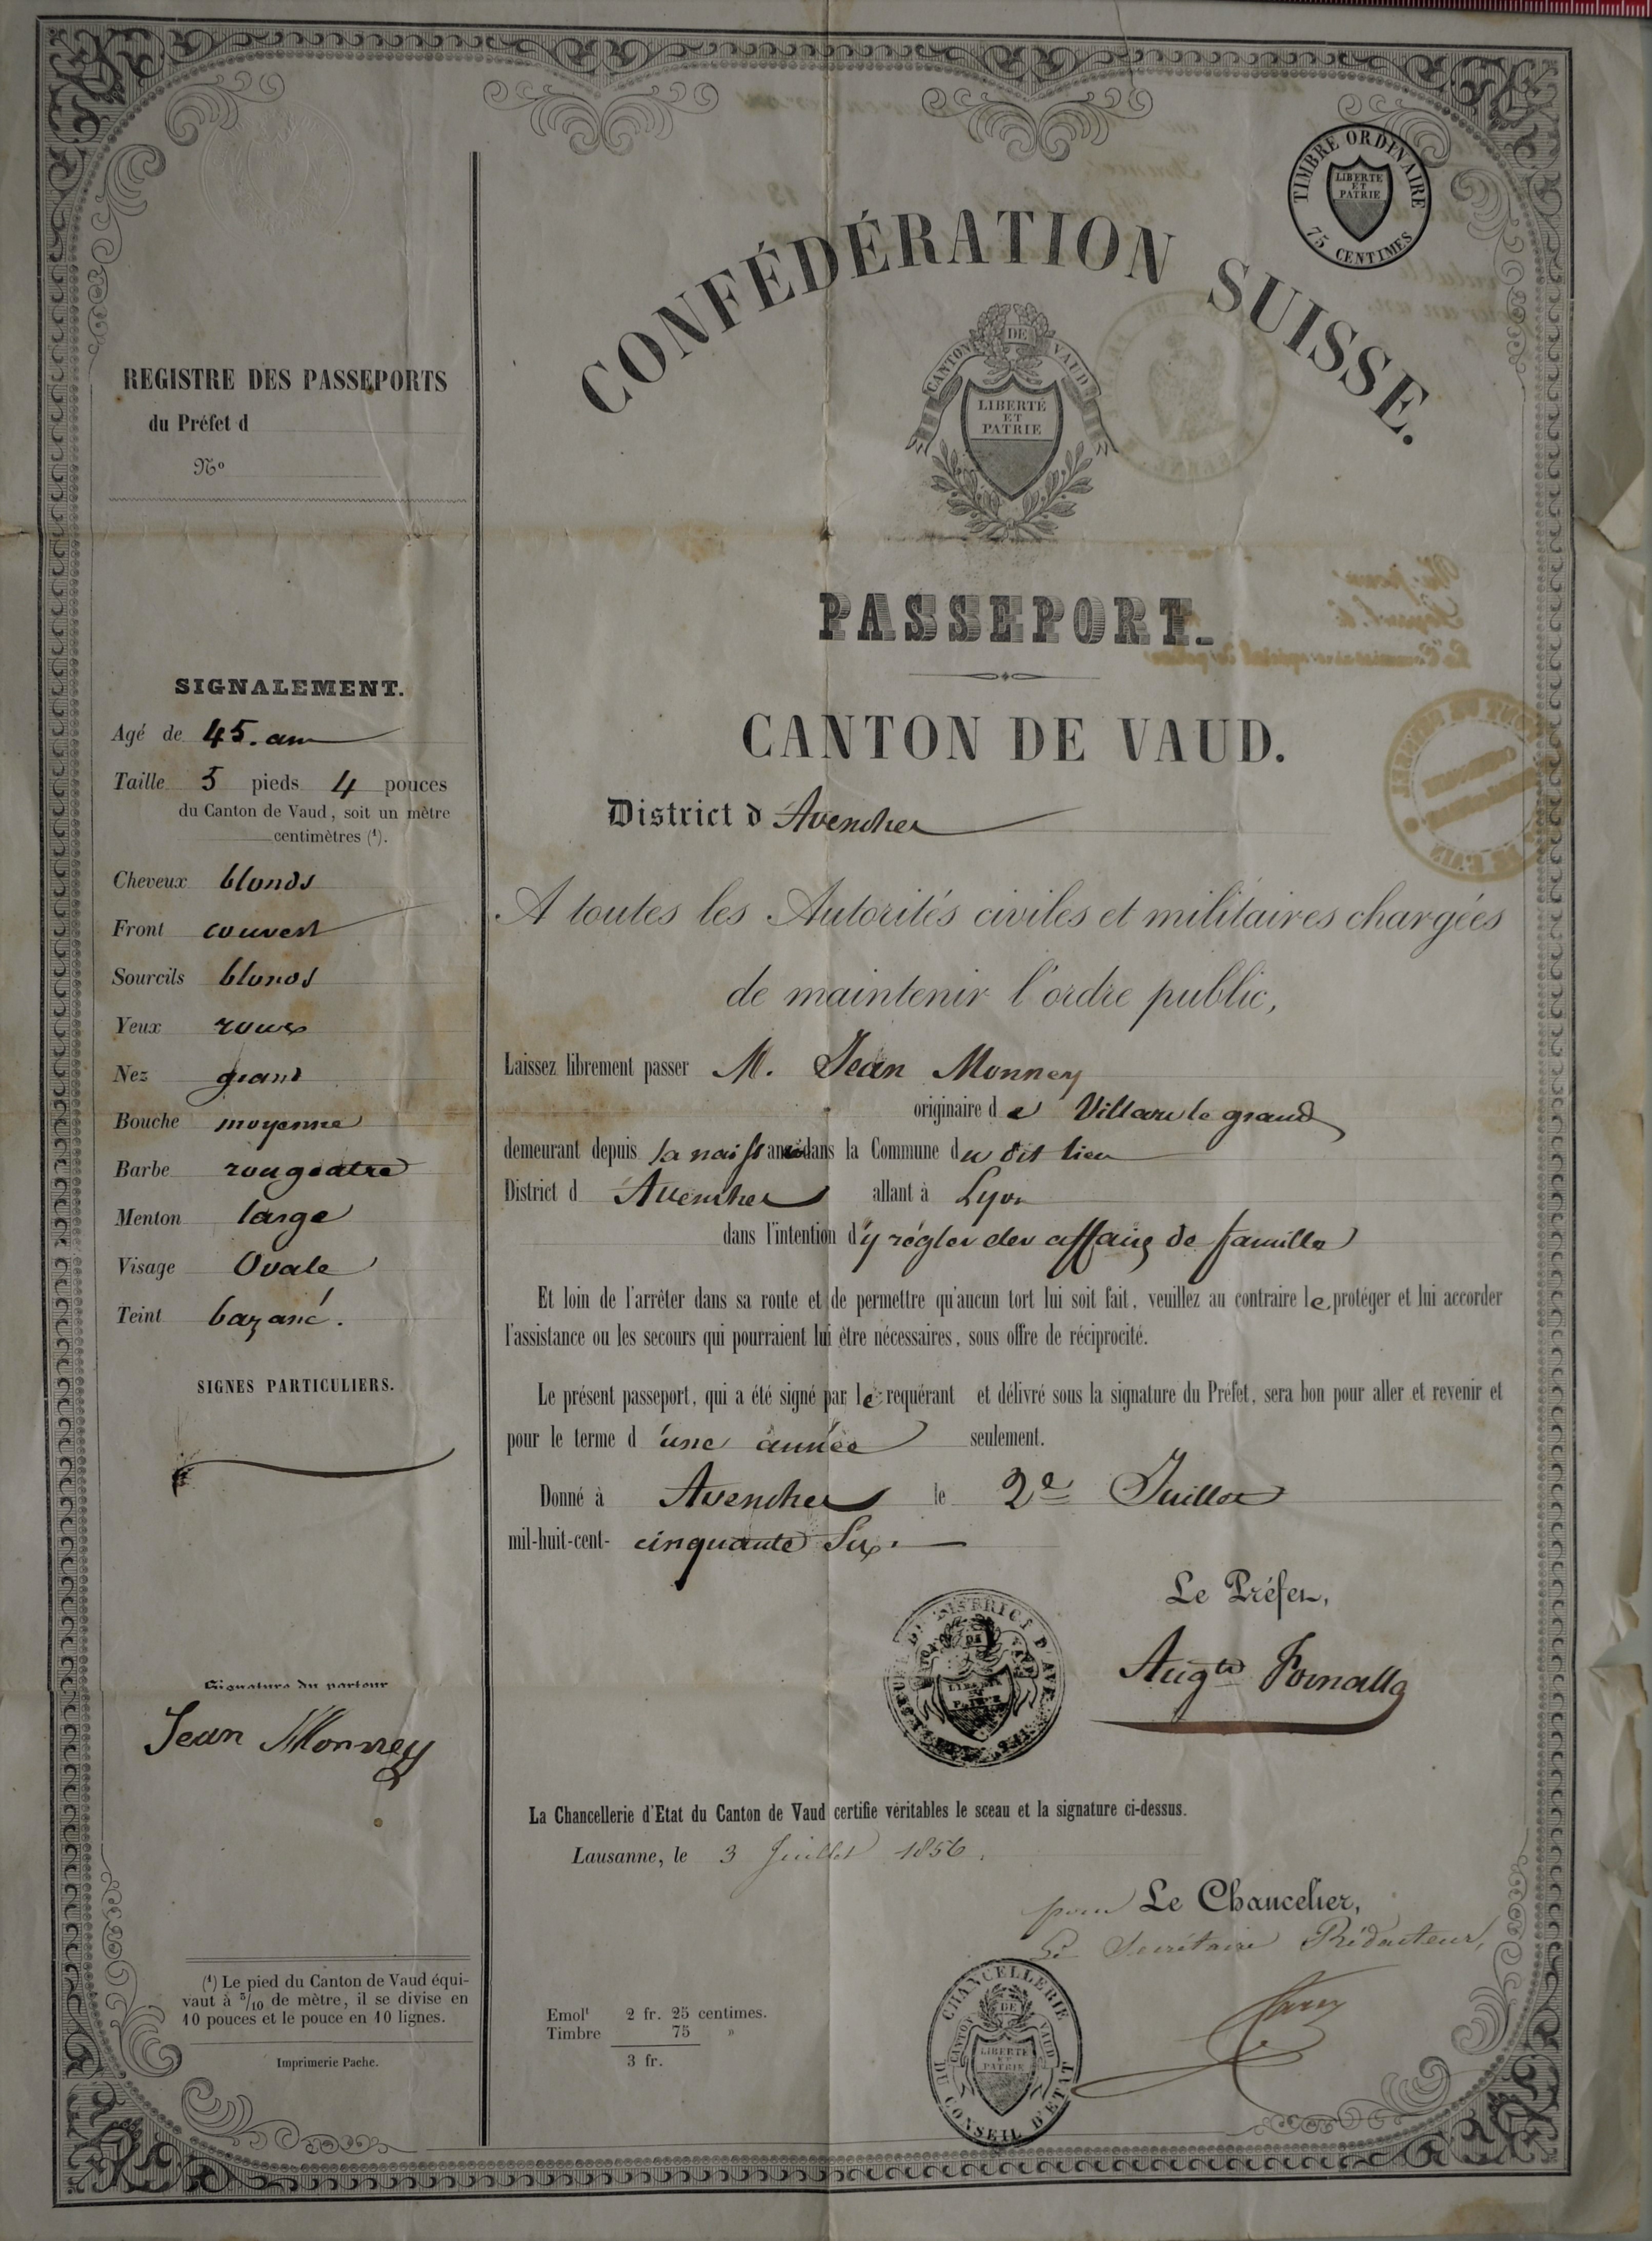 TIMBRE ORDINAIRE
LIBERTE
ET
PATRIE
75 CENTIMES
CONFÉDÉRATION SUISSE.
CANTON DE VAUD
LIBERTÉ
ET
PATRIE
REGISTRE DES PASSEPORTS
du Préfet d
No
PASSEPORT.
SIGNALEMENT.
Agé de 45. ans
Taille 5 pieds 4 pouces
du Canton de Vaud, soit un mètre
centimètres (1).
Cheveux blonds
Front couvert
Sourcils blonds
Yeux roux
Nez grand
Bouche moyenne
Barbe rougeatre
Menton large
Visage Ovale
Teint bazané.
SIGNES PARTICULIERS.
Signature du porteur
Jean Monney
(1) Le pied du Canton de Vaud équi-
vaut à 3/10 de mètre, il se divise en
10 pouces et le pouce en 10 lignes.
Imprimerie Pache.
CANTON DE VAUD.
District d Avenches
A toutes les Autorités civiles et militaires chargées
de maintenir l'ordre public,
Laissez librement passer M. Jean Monney
originaire de Villars le grand
demeurant depuis la naissance dans la Commune du dit lieu
District d Avenches allant à Lyon
dans l'intention d'y régler des affaires de famille
Et loin de l'arrêter dans sa route et de permettre qu'aucun tort lui soit fait, veuillez au contraire le protéger et lui accorder
l'assistance ou les secours qui pourraient lui être nécessaires, sous offre de réciprocité.
Le présent passeport, qui a été signé par le requérant et délivré sous la signature du Préfet, sera bon pour aller et revenir et
pour le terme d'une année seulement.
Donné à Avenches le 2e Juillet
mil-huit-cent- cinquante Six.
Le Préfet,
Augte Fornallaz
La Chancellerie d'Etat du Canton de Vaud certifie véritables le sceau et la signature ci-dessus.
Lausanne, le 3 Juillet 1856.
pour Le Chancelier,
Le Secrétaire Rédacteur,
CHANCELLERIE
DU CONSEIL D'ETAT
CANTON DE VAUD
LIBERTÉ
ET
PATRIE
Emolt 2 fr. 25 centimes.
Timbre 75 »
3 fr.